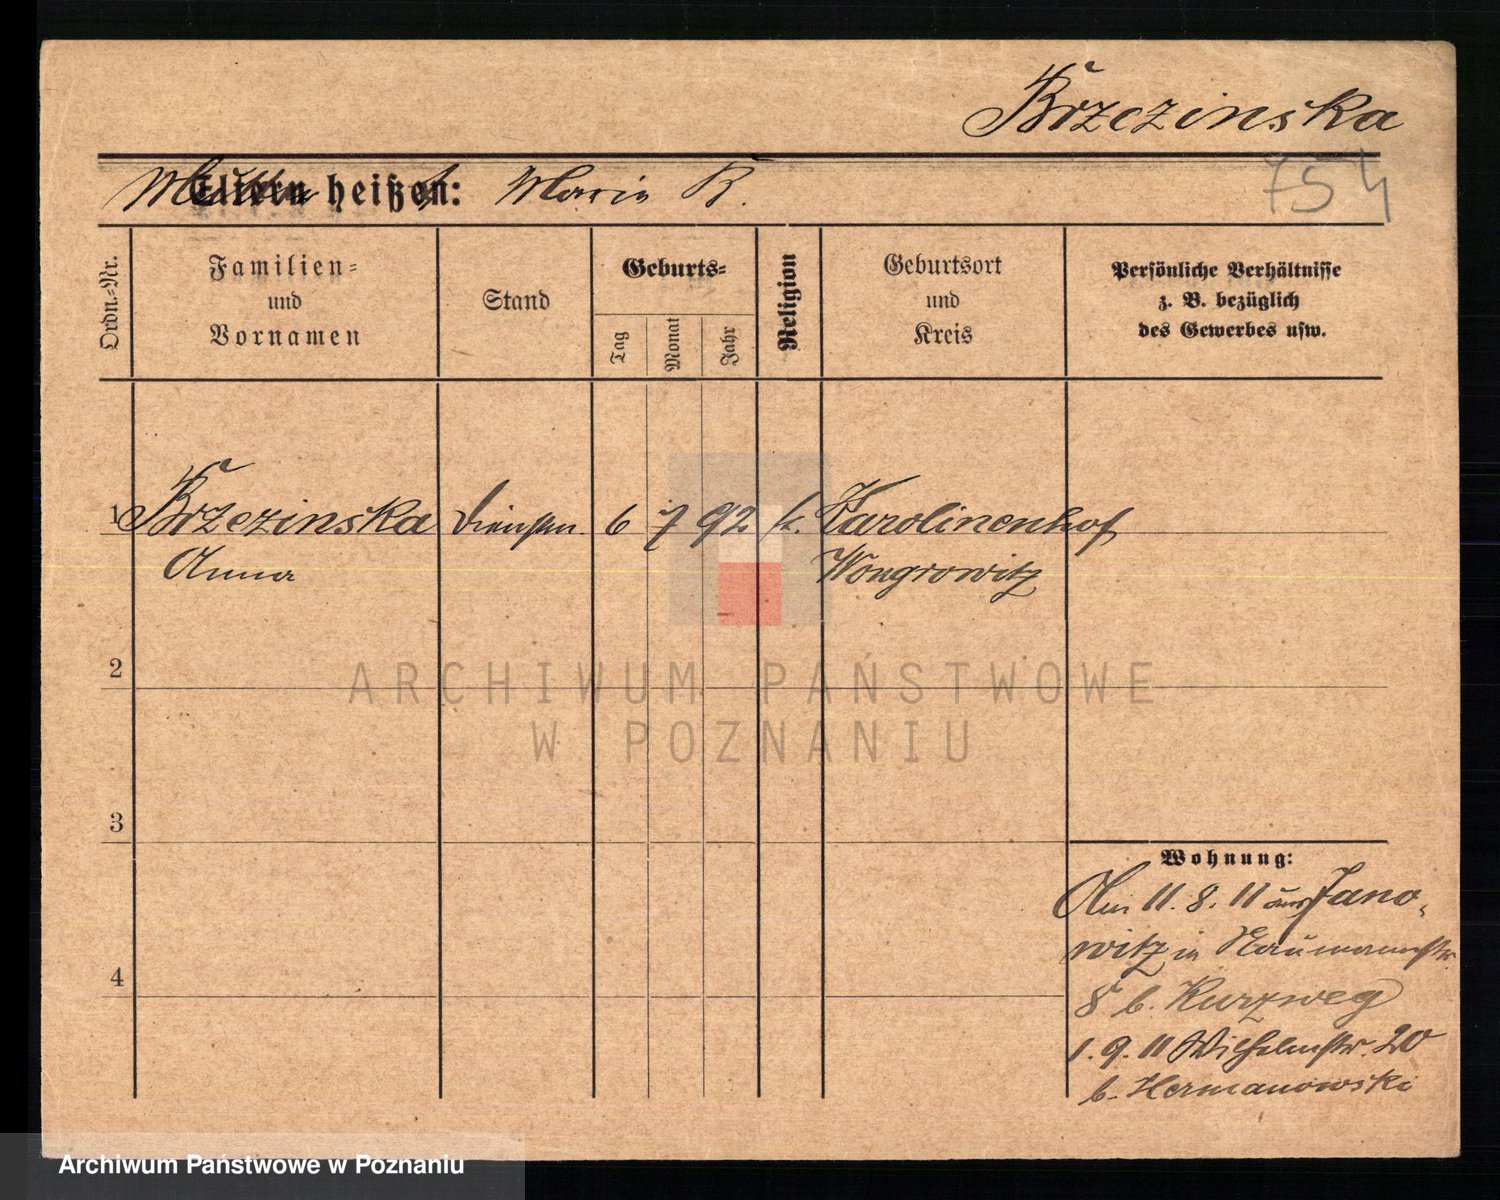 Brzezinska
754
Mutter
Eltern heißen: Maria B.
Ordn.-Nr.
Familien-
und
Vornamen
Stand
Geburts-
Tag
Monat
Jahr
Religion
Geburtsort
und
Kreis
Persönliche Verhältnisse
z. B. bezüglich
des Gewerbes usw.
1 Brzezinska Dienstm. 6 7 92 k. Karolinenhof
Anna Wongrowitz
2
ARCHIWUM PAŃSTWOWE
W POZNANIU
3
Wohnung:
Am 11. 8. 11 aus Jano-
witz in Naumannstr.
8 b. Kurzweg
4
1. 9. 11 Wilhelmstr. 20
b. Hermanowski
Archiwum Państwowe w Poznaniu